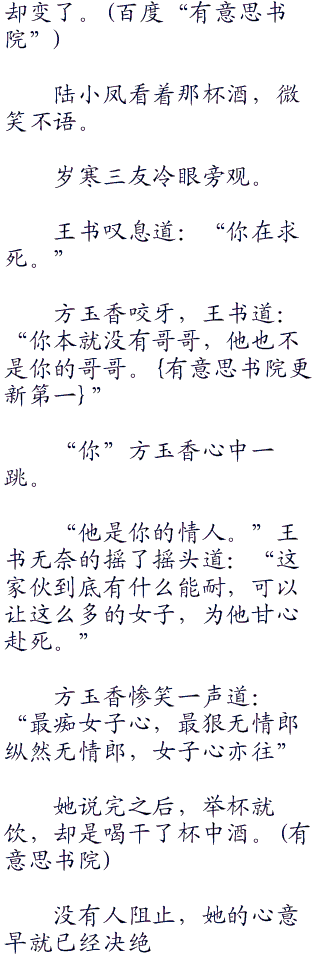 却变了。(百度“有意思书
院”)
陆小凤看着那杯酒，微
笑不语。
岁寒三友冷眼旁观。
王书叹息道：“你在求
死。”
方玉香咬牙，王书道：
“你本就没有哥哥，他也不
是你的哥哥。{有意思书院更
新第一}”
“你”方玉香心中一
跳。
“他是你的情人。”王
书无奈的摇了摇头道：“这
家伙到底有什么能耐，可以
让这么多的女子，为他甘心
赴死。”
方玉香惨笑一声道：
“最痴女子心，最狠无情郎
纵然无情郎，女子心亦往”
她说完之后，举杯就
饮，却是喝干了杯中酒。(有
意思书院)
没有人阻止，她的心意
早就已经决绝